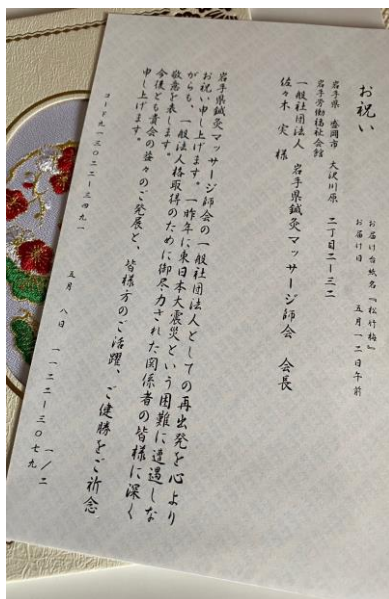 お祝い
お届け台紙名『松竹梅』
お届け日 五月一二日午前
岩手県 盛岡市 大沢川原 二丁目二ー三二
岩手労働福祉会館
一般社団法人 岩手県鍼灸マッサージ師会 会長
佐々木 実 様
岩手県鍼灸マッサージ師会の一般社団法人としての再出発を心より
お祝い申し上げます。一昨年に東日本大震災という困難に遭遇しな
がらも、一般法人格取得のために御尽力された関係者の皆様に深く
敬意を表します。
今後とも貴会の益々のご発展と、皆様方のご活躍、ご健勝をご祈念
申し上げます。
コード九一三〇二二ー三四九一 五月 八日 一一二二ー三〇七九
一/二